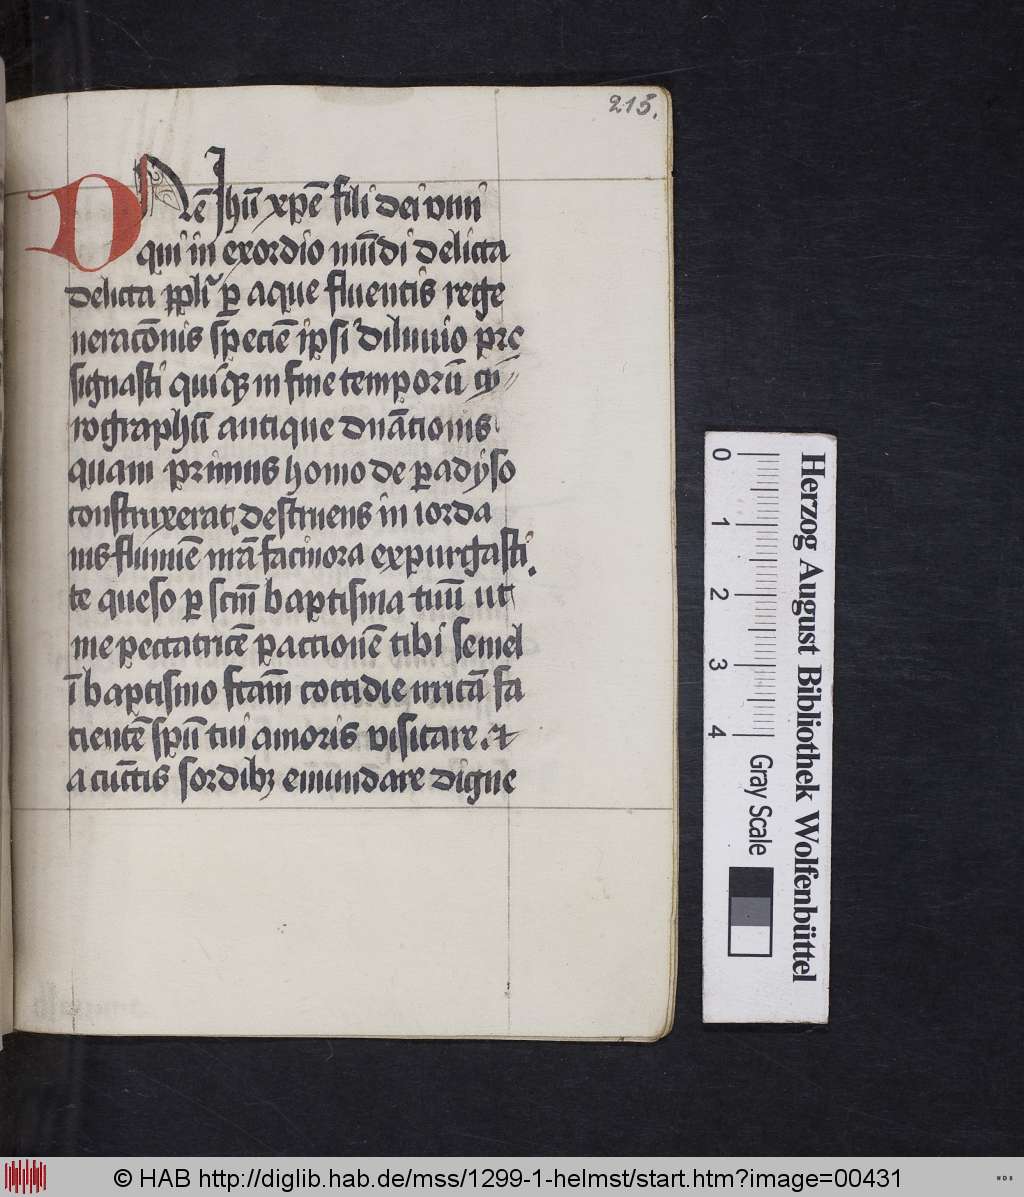 215.
DNē Jhū xp̄e fili dei viui
qui in exordio mūdi delicta
delicta ppl̄i ꝑ aque fluentis rege
neracōnis speciē ip̄si diluuio pre
signasti quiqꝫ in fine temporū cy//
rographū antique dnātionis
quam primus homo de ꝑadyso
construxerat. destruens in iorda
nis flumīe nr̄a facinora expurgasti.
te queso ꝑ scm̄ baptisma tuū ut
me peccatricē ꝑactionē tibi semel
ī baptismo fcām cottidie irritā fa
cientē spū tui amoris visitare. et
a cūctis sordibꝫ emundare digne
0 1 2 3 4
Gray Scale
Herzog August Bibliothek Wolfenbüttel
© HAB http://diglib.hab.de/mss/1299-1-helmst/start.htm?image=00431